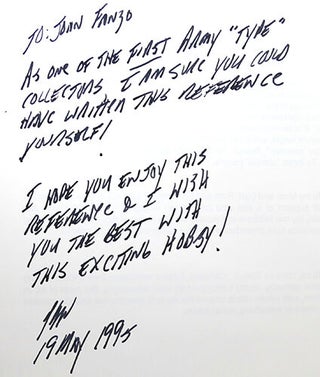 TO: JOHN FANZO
AS ONE OF THE FIRST ARMY "TYPE"
COLLECTORS, I AM SURE YOU COULD
HAVE WRITTEN THIS REFERENCE
YOURSELF!
I HOPE YOU ENJOY THIS
REFERENCE & I WISH
YOU THE BEST WITH
THIS EXCITING HOBBY!
19 MAY 1995